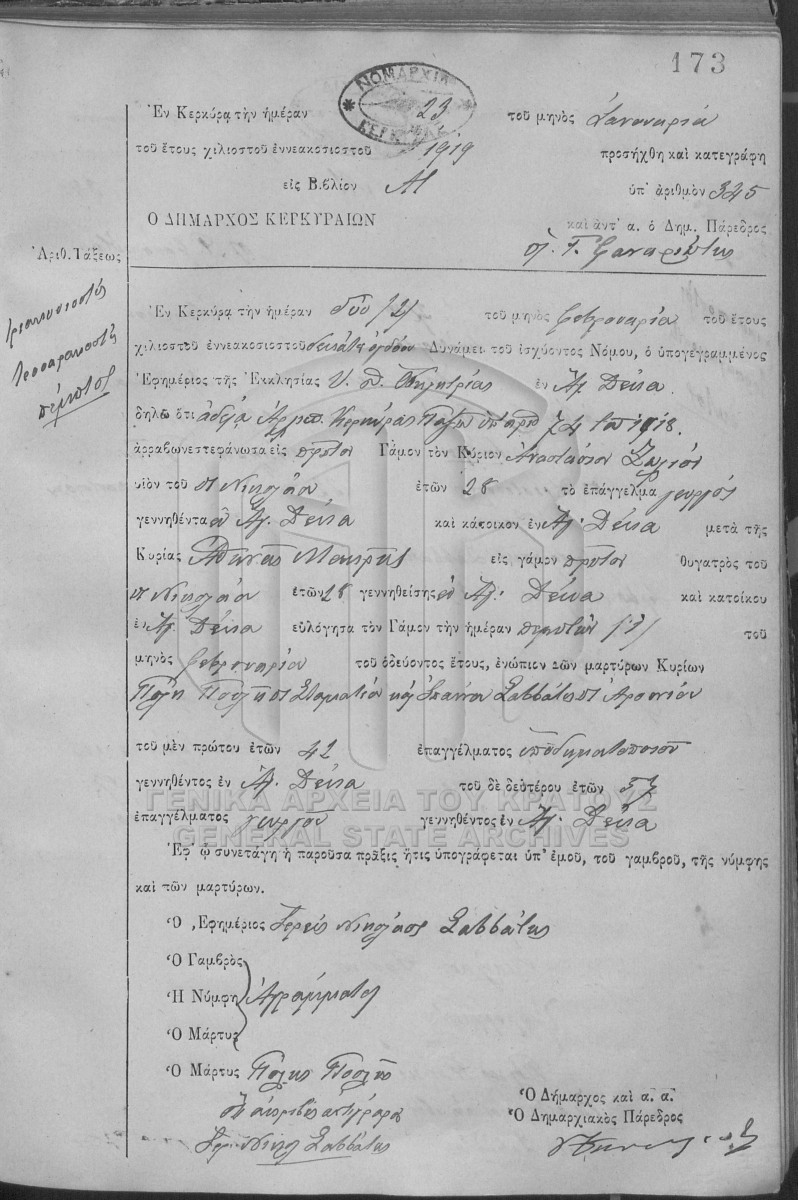 173
ΝΟΜΑΡΧΙΑ
ΚΕΡΚΥΡΑΣ
Ἐν Κερκύρᾳ τὴν ἡμέραν 23 τοῦ μηνὸς Ἰανουαρίου
τοῦ ἔτους χιλιοστοῦ ἐννεακοσιοστοῦ 1919 προσήχθη καὶ κατεγράφη
εἰς Βιβλίον Μ ὑπ' ἀριθμὸν 345
Ο ΔΗΜΑΡΧΟΣ ΚΕΡΚΥΡΑΙΩΝ καὶ ἀντ' α. ὁ Δημ. Πάρεδρος
Ἀριθ. Τάξεως
τριακοσιοστὴ
τεσσαρακοστὴ
πέμπτη
Ἐν Κερκύρᾳ τὴν ἡμέραν δύο /2/ τοῦ μηνὸς Φεβρουαρίου τοῦ ἔτους
χιλιοστοῦ ἐννεακοσιοστοῦ δεκάτου ὀγδόου Δυνάμει τοῦ ἰσχύοντος Νόμου, ὁ ὑπογεγραμμένος
Ἐφημέριος τῆς Ἐκκλησίας Υ. Θ. Ὁδηγητρίας ἐν Ἁγ. Δέκα
δηλῶ ὅτι ἀδείᾳ Ἀρχιεπ. Κερκύρας 74 1918.
ἀρραβωνεστεφάνωσα εἰς πρῶτον Γάμον τὸν Κύριον Ἀναστάσιον
υἱὸν τοῦ Νικολάου ἐτῶν 28 τὸ ἐπάγγελμα γεωργός
γεννηθέντα ἐν Ἁγ. Δέκα καὶ κάτοικον ἐν Ἁγ. Δέκα μετὰ τῆς
Κυρίας Ἀθηνᾶς Μακρῆς εἰς γάμον πρῶτον θυγατρὸς τοῦ
Νικολάου ἐτῶν 28 γεννηθείσης ἐν Ἁγ. Δέκα καὶ κατοίκου
ἐν Ἁγ. Δέκα εὐλόγησα τὸν Γάμον τὴν ἡμέραν πρώτην /1/ τοῦ
μηνὸς Φεβρουαρίου τοῦ ὁδεύοντος ἔτους, ἐνώπιον τῶν μαρτύρων Κυρίων
Πολίτη Σταματίου καὶ Ἰωάννου Σαββάτη
τοῦ μὲν πρώτου ἐτῶν 42 ἐπαγγέλματος ὑποδηματοποιοῦ
γεννηθέντος ἐν Ἁγ. Δέκα τοῦ δὲ δευτέρου ἐτῶν 57
ΓΕΝΙΚΑ ΑΡΧΕΙΑ ΤΟΥ ΚΡΑΤΟΥΣ
ἐπαγγέλματος γεωργοῦ γεννηθέντος ἐν Ἁγ. Δέκα
GENERAL STATE ARCHIVES
Ἐφ' ᾧ συνετάγη ἡ παροῦσα πρᾶξις ἥτις ὑπογράφεται ὑπ' ἐμοῦ, τοῦ γαμβροῦ, τῆς νύμφης
καὶ τῶν μαρτύρων.
Ὁ Ἐφημέριος Ἱερεὺς Νικόλαος Σαββάτης
Ὁ Γαμβρὸς
Ἡ Νύμφη Ἀγράμματοι
Ὁ Μάρτυς
Ὁ Μάρτυς
Ὁ Δήμαρχος καὶ α. α.
ἀκριβὲς ἀντίγραφον
Ὁ Δημαρχιακὸς Πάρεδρος
Ἱερ. Νικόλ. Σαββάτης